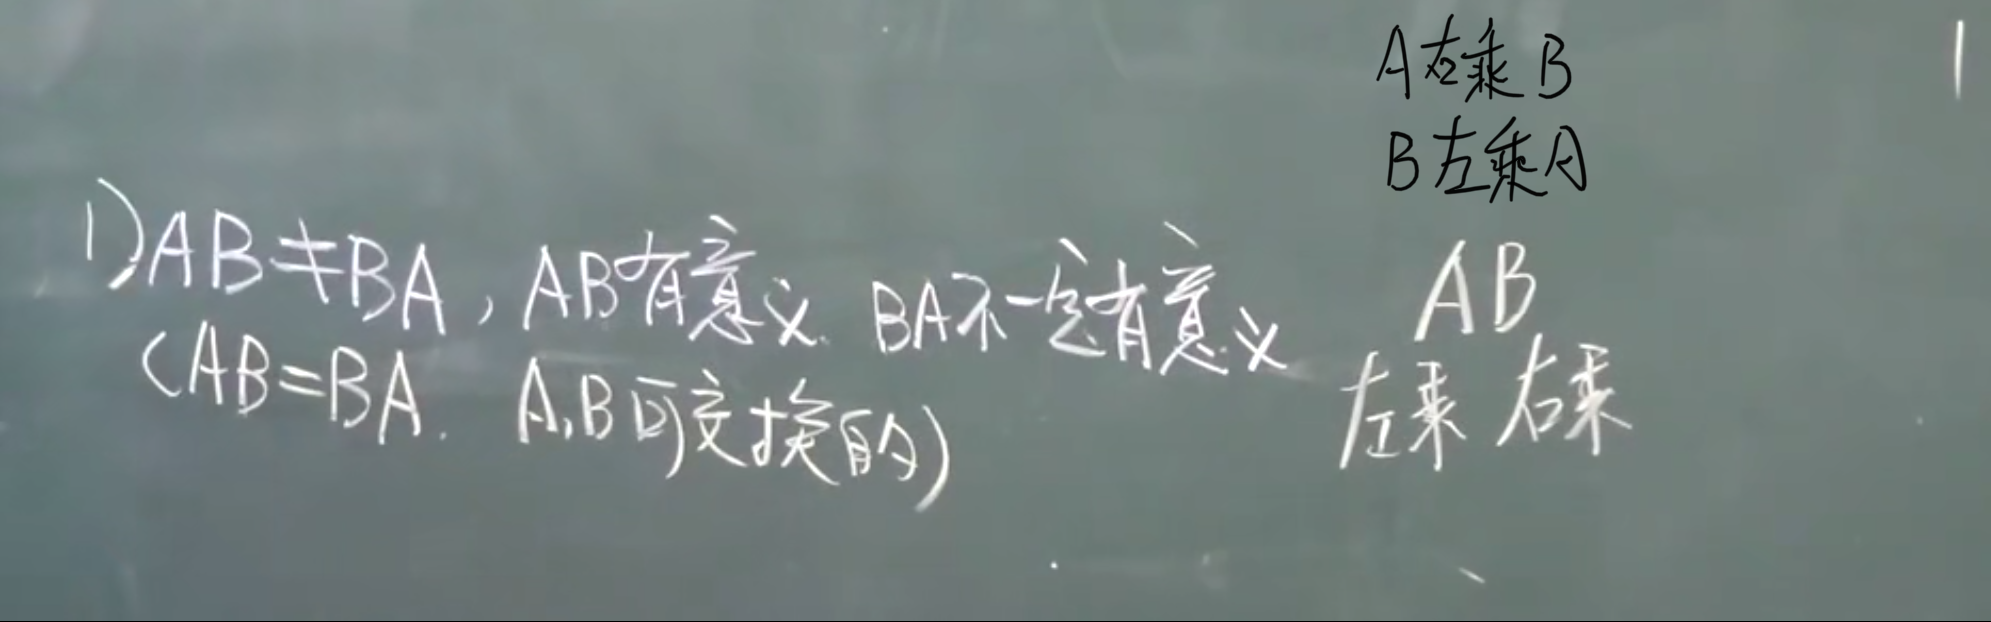 A左乘B
B左乘A
1)AB≠BA,AB有意义.BA不一定有意义
(AB=BA. A,B可交换的)
AB
左乘 右乘